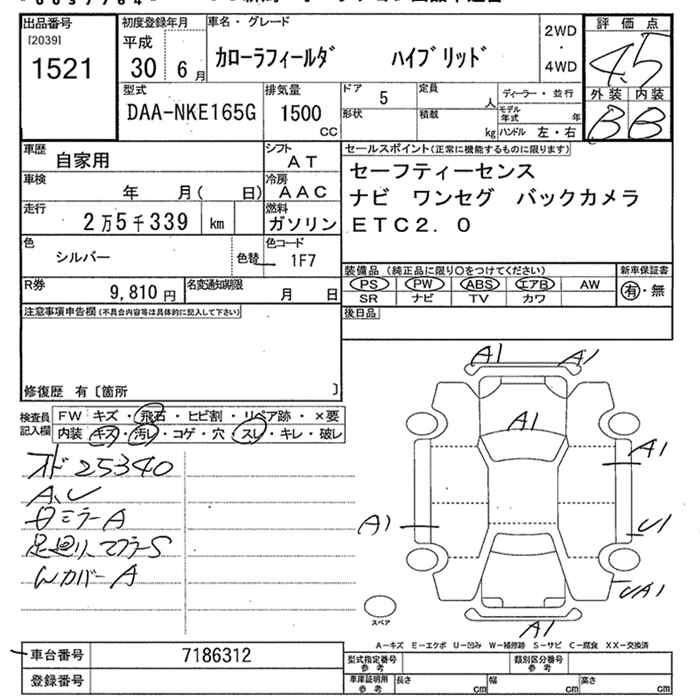 出品番号
[2039]
1521
初度登録年月
平成
30 6月
車名・グレード
カローラフィールダ ハイブリッド
2WD
・
4WD
評価点
4.5
外装 内装
B B
型式
DAA-NKE165G
排気量
1500
CC
ドア
5
定員
人
形状
積載
kg
ディーラー・並行
モデル年式 年
ハンドル 左・右
車歴
自家用
シフト
AT
車検
年 月( 日)
冷房
AAC
走行
2万5千339 km
燃料
ガソリン
色
シルバー
色替
色コード
1F7
R券
9,810円
名変通知期限
月 日
セールスポイント(正常に機能するものに限ります)
セーフティーセンス
ナビ ワンセグ バックカメラ
ETC2.0
装備品(純正品に限り○をつけてください)
PS PW ABS エアB AW
SR ナビ TV カワ
新車保証書
有・無
後日品
注意事項申告欄(不具合内容等は具体的に記入して下さい)
修復歴 有〔箇所 〕
検査員
記入欄
FW キズ・飛石・ヒビ割・リペア跡・×要
内装 キズ・汚レ・コゲ・穴・スレ・キレ・破レ
オド25340
A、U
日ミラーA
足廻り、マフラーS
WカバーA
A1
A1
A1
A1
A1
U1
UA1
A1
スペア
A-キズ E-エクボ U-凹み W-補修跡 S-サビ C-腐食 XX-交換済
車台番号
7186312
登録番号
型式指定番号
参考
類別区分番号
参考
車庫証明用
参考
長さ cm
幅 cm
高さ cm